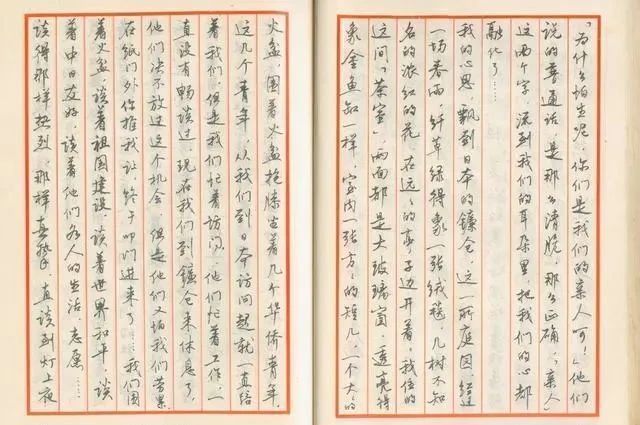 “为什么怕生呢，你们是我们的亲人呵！”他们
说的普通话是那么清脆，那么正确，“亲人”
这两个字，流到我们的耳朵里，把我们的心都
融化了……
我的心思飘到日本的镰仓，这一所庭园，经过
一场春雨，纤草绿得象一张绒毯，几树不知
名的浓红的花，在远远的亭子边开着，我住的
这间“茶室”，两面都是大玻璃窗，透亮得
象金鱼缸一样，室内一张方方的矮几，一个大大的
火盆，围着火盆抱膝坐着几个华侨青年。
这几个青年，从我们到日本访问起就一直陪
着我们，但是我们忙着访问，他们忙着工作，一
直没有畅谈过，现在我们到镰仓来休息了，
他们决不放过这个机会，但是他们又怕我们劳累，
在纸门外你推我让，终于叩门进来了……我们围
着火盆，谈着祖国建设，谈着世界和平，谈
着中日友好，谈着他们各人的生活，志愿……
谈得那样热烈，那样真挚，直谈到灯上夜